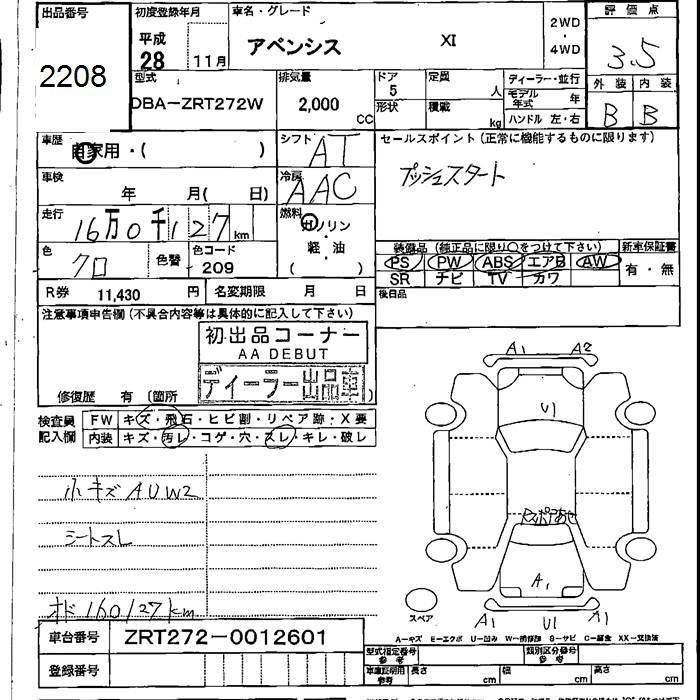 出品番号
2208
初度登録年月
平成
28 11月
車名・グレード
アベンシス XI
2WD
・
4WD
評価点
3.5
型式
DBA-ZRT272W
排気量
2,000 CC
ドア
5
形状
定員
人
積載
kg
ディーラー・並行
モデル年式 年
ハンドル 左・右
外装 内装
B B
車歴
自家用・( )
シフト
AT
車検
年 月( 日)
冷房
AAC
走行
16万0千127km
燃料
ガソリン
軽・油
( )
色
クロ
色替
色コード
209
R券 11,430 円
名変期限 月 日
セールスポイント(正常に機能するものに限ります)
プッシュスタート
装備品(純正品に限り○をつけて下さい)
PS PW ABS エアB AW
SR ナビ TV カワ
新車保証書
有・無
後日品
注意事項申告欄(不具合内容等は具体的に記入して下さい)
初出品コーナー
AA DEBUT
ディーラー出品車
修復歴 有 (箇所 )
検査員記入欄
FW キズ・飛石・ヒビ割・リペア跡・X要
内装 キズ・汚レ・コゲ・穴・スレ・キレ・破レ
小キズ AUW2
シートスレ
オド 160127km
A1 A2
U1
A1
U1 A1
スペア
A-キズ E-エクボ U-凹み
車台番号 ZRT272-0012601
登録番号
型式指定番号
参考
類別区分番号
参考
長さ cm 幅 cm 高さ cm